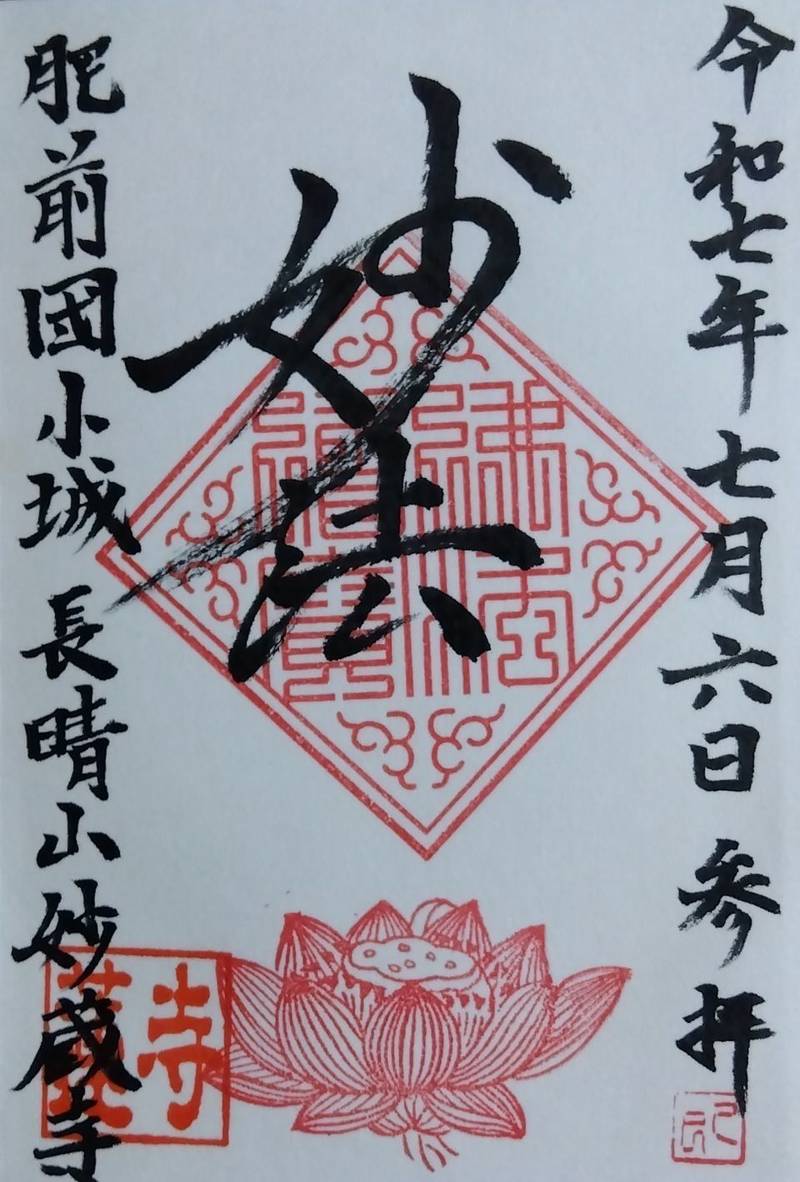 令和七年 七月六日 参拝
妙法
肥前國小城 長晴山妙蔵寺
佛法
僧寶